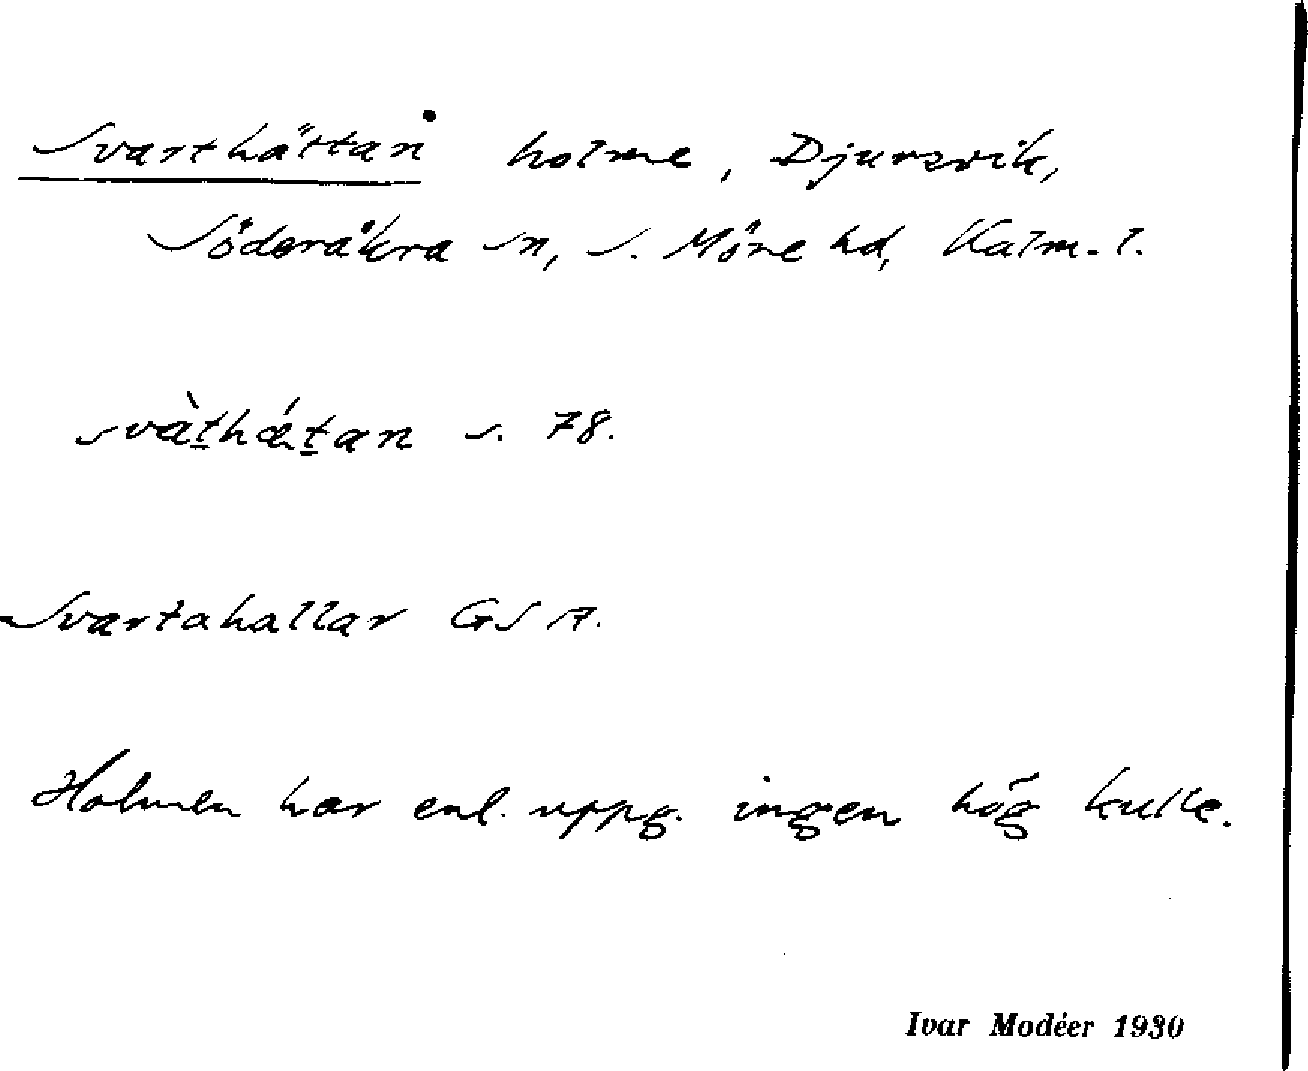 Svarthättan holme, Djursvik,
Söderåkra sn, S. Möre hd, Kalm. l.
svàt̲hǽt̲an s. 78.
Svartahallar GSA.
Holmen har enl. uppg. ingen hög kulle.
Ivar Modéer 1930